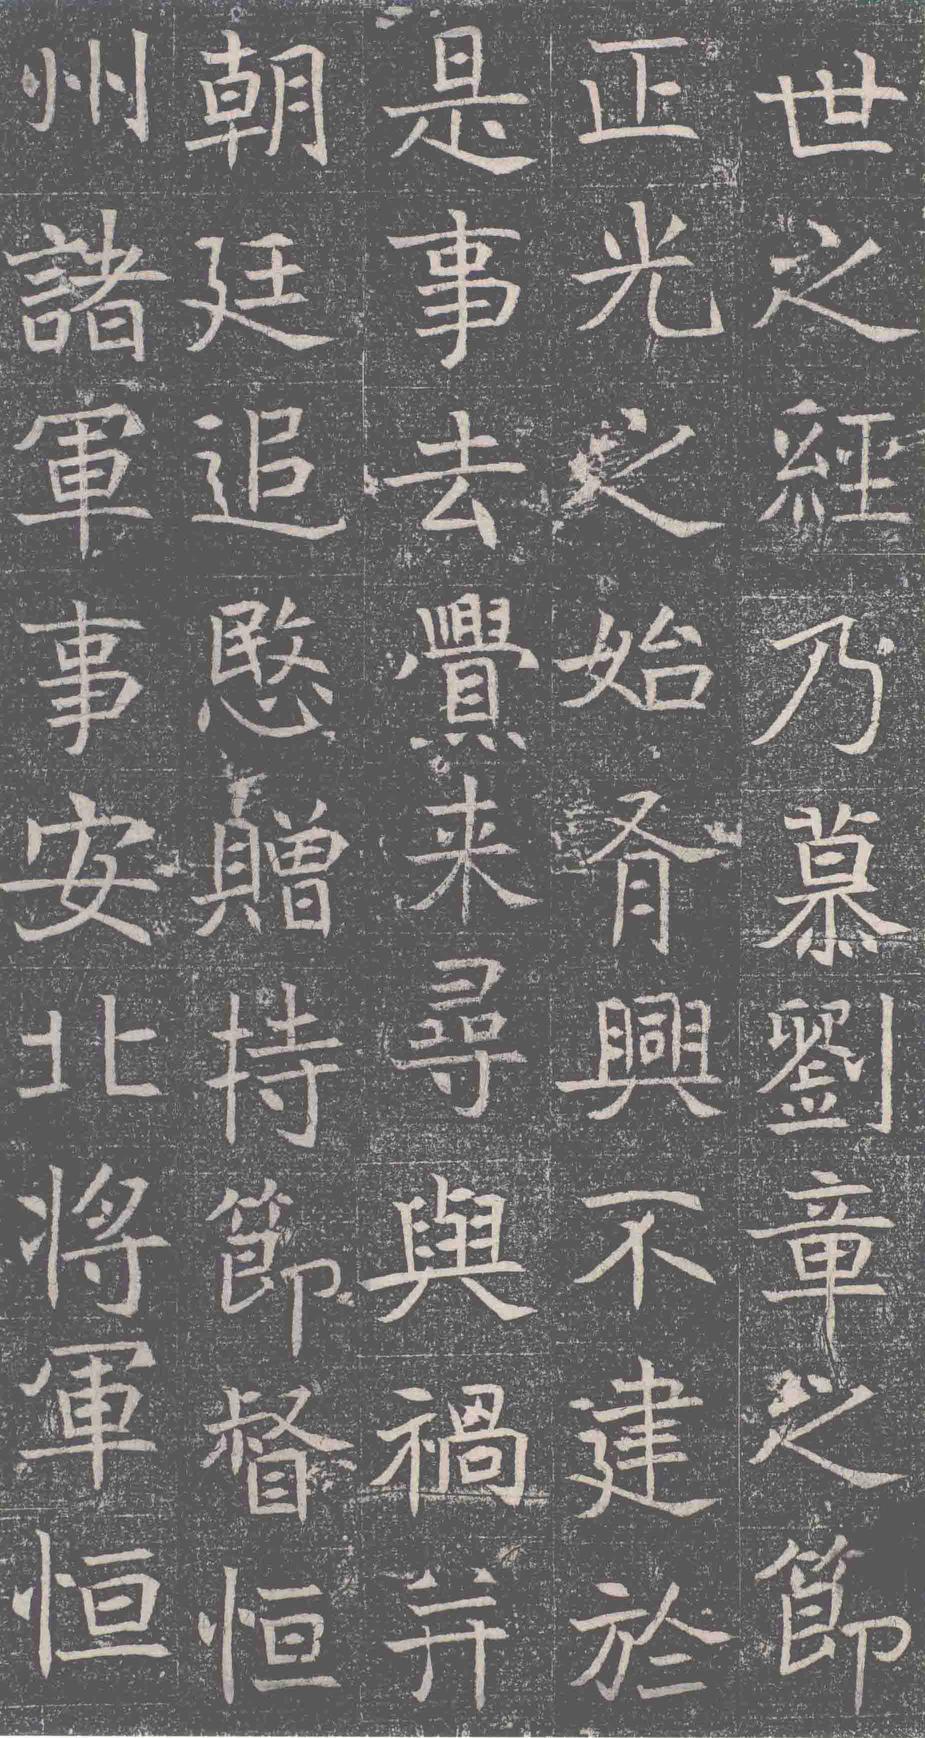 世之經乃慕劉章之節
正光之始肴興不建於
是事去釁来尋與禍并
朝廷追愍贈持節督恒
州諸軍事安北将軍恒